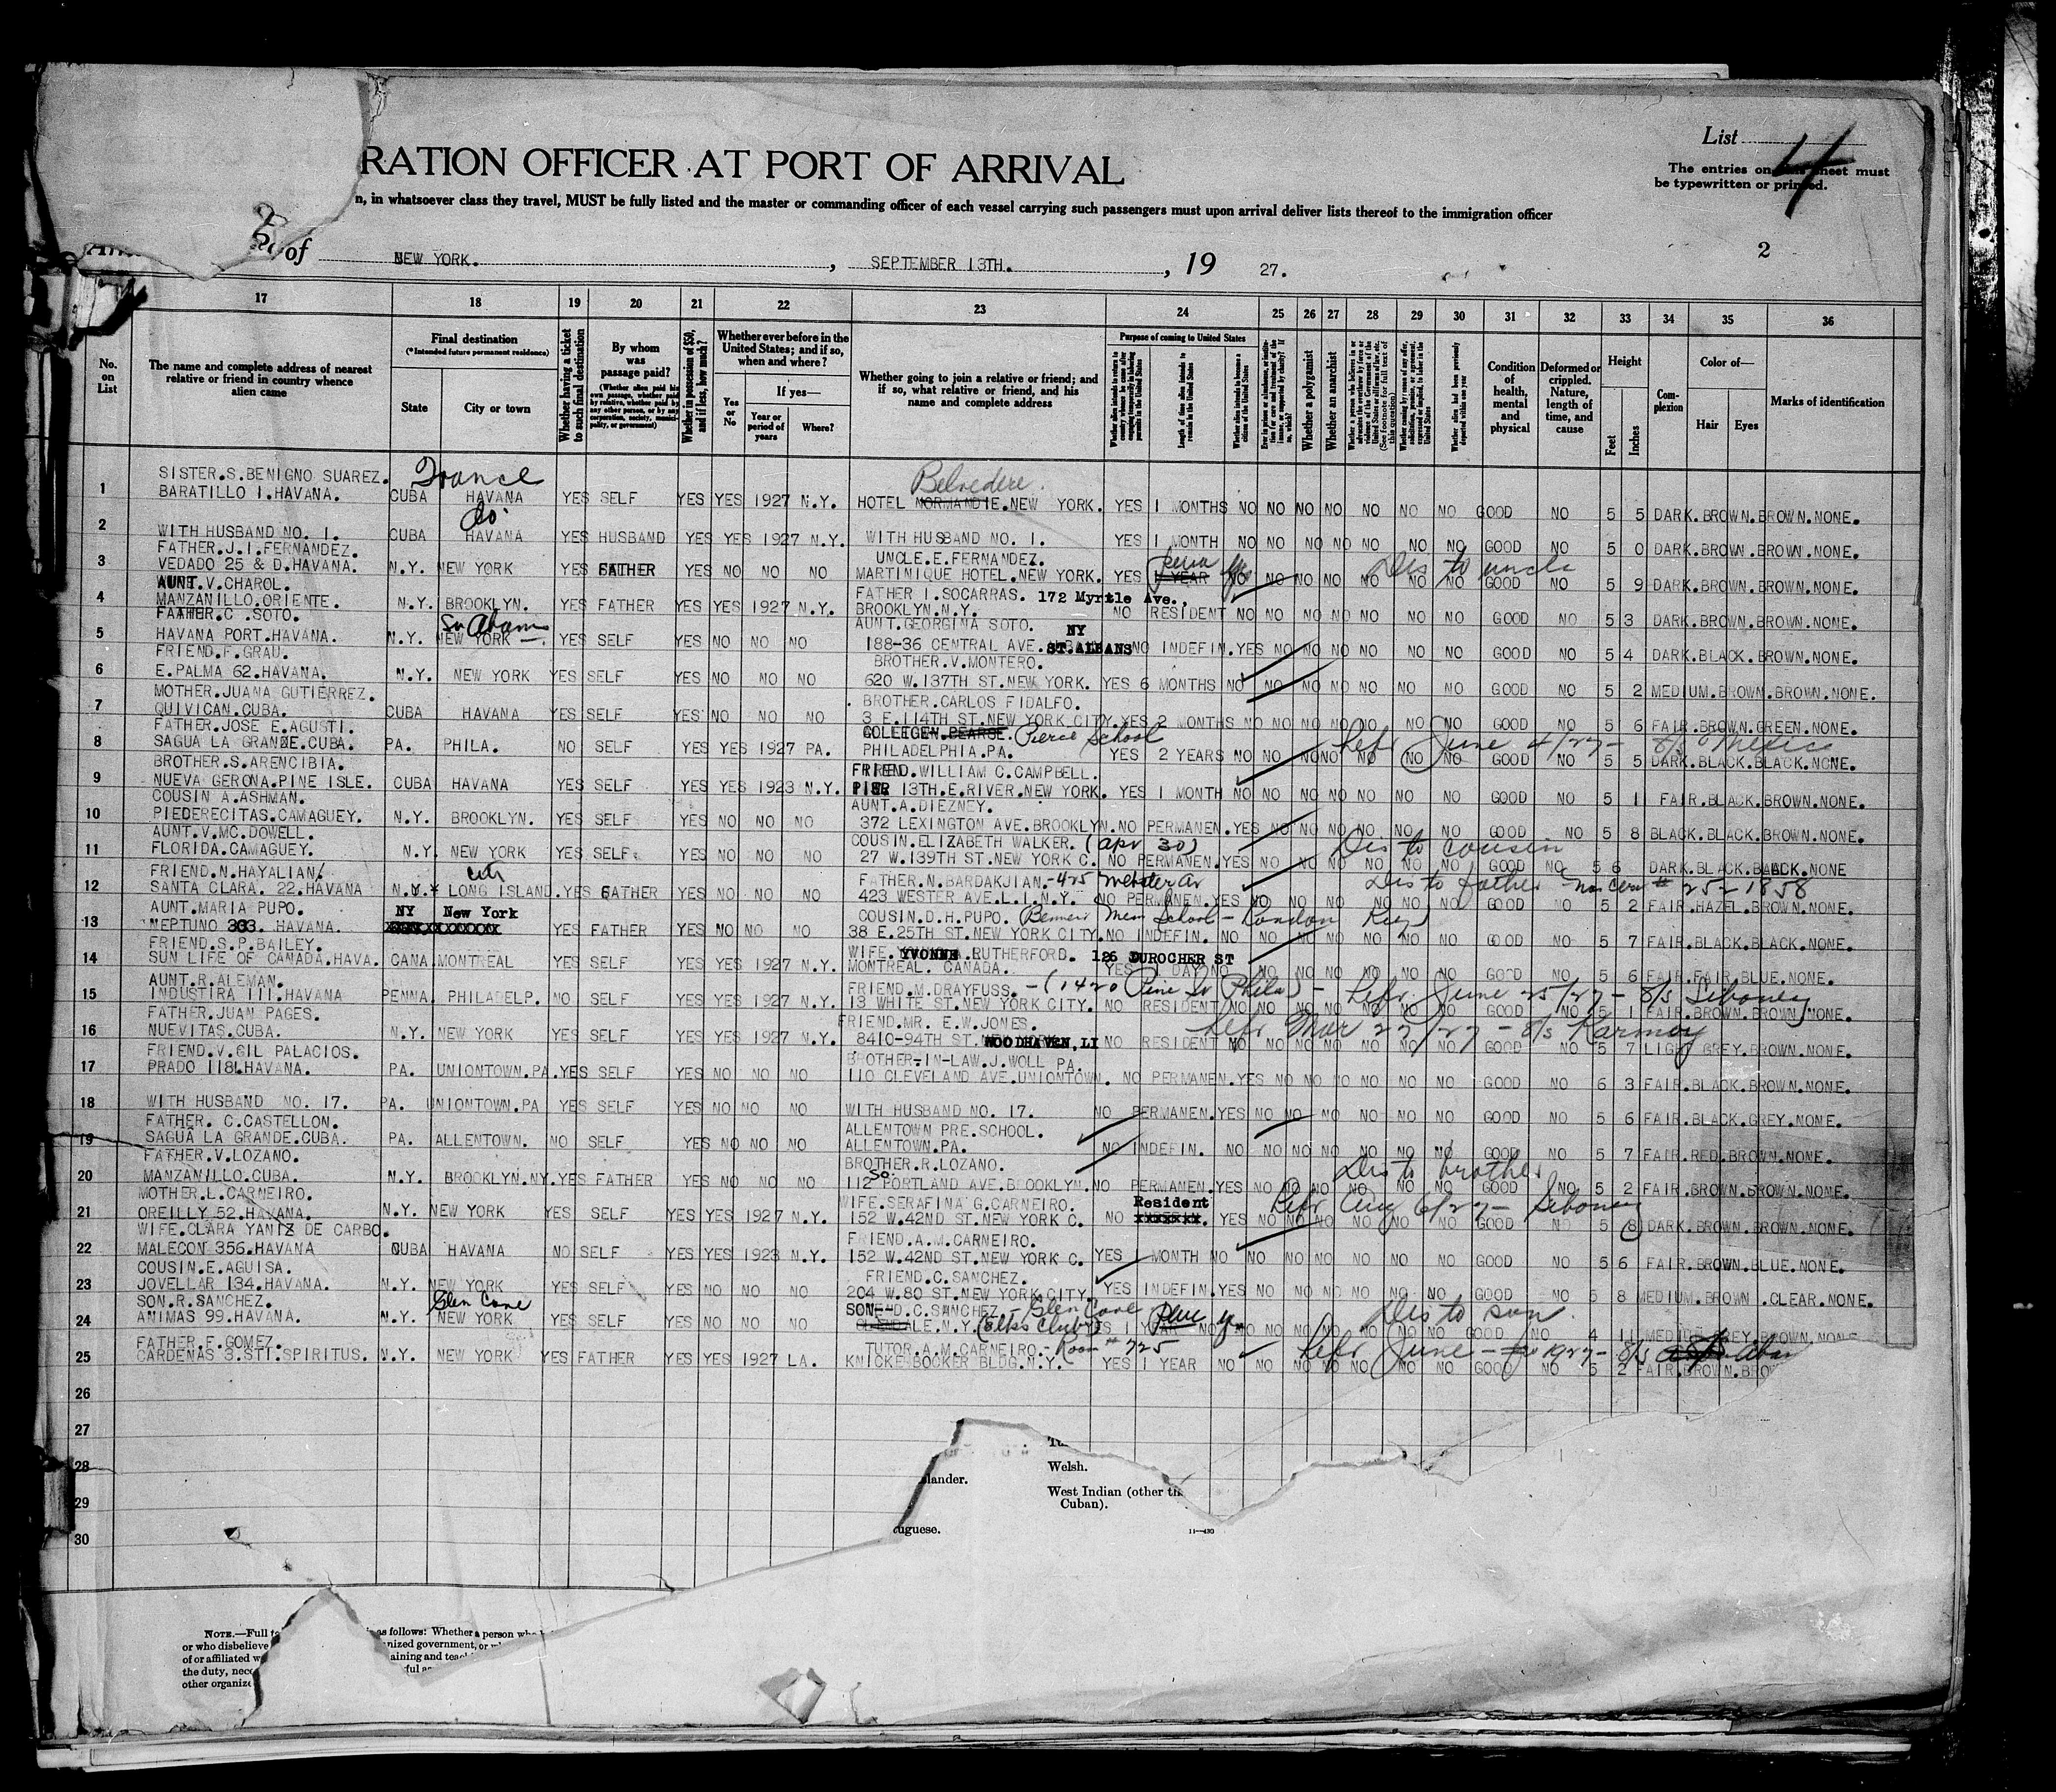 List 4
RATION OFFICER AT PORT OF ARRIVAL
The entries on this sheet must
be typewritten or printed.
n, in whatsoever class they travel, MUST be fully listed and the master or commanding officer of each vessel carrying such passengers must upon arrival deliver lists thereof to the immigration officer
of NEW YORK. , SEPTEMBER 13TH. , 19 27.
2
17 18 19 20 21 22 23 24 25 26 27 28 29 30 31 32 33 34 35 36
No. on List
The name and complete address of nearest relative or friend in country whence alien came
Final destination
(*Intended future permanent residence)
State City or town
Whether having a ticket to such final destination
By whom was passage paid?
Whether in possession of $50, and if less, how much?
Whether ever before in the United States; and if so, when and where?
Yes or No
If yes—
Year or period of years Where?
Whether going to join a relative or friend; and if so, what relative or friend, and his name and complete address
Purpose of coming to United States
Whether a polygamist
Whether an anarchist
Condition of health, mental and physical
Deformed or crippled. Nature, length of time, and cause
Height
Feet Inches
Complexion
Color of—
Hair Eyes
Marks of identification
SISTER.S.BENIGNO SUAREZ. France Belvedere.
1 BARATILLO 1.HAVANA. CUBA HAVANA YES SELF YES YES 1927 N.Y. HOTEL NORMANDIE.NEW YORK. YES 1 MONTHS NO NO NO NO NO NO NO GOOD NO 5 5 DARK.BROWN.BROWN.NONE.
do.
2 WITH HUSBAND NO. 1. CUBA HAVANA YES HUSBAND YES YES 1927 N.Y. WITH HUSBAND NO. 1. YES 1 MONTH NO NO NO NO NO NO NO GOOD NO 5 0 DARK.BROWN.BROWN.NONE.
FATHER.J.I.FERNANDEZ. UNCLE.E.FERNANDEZ. Dis to uncle
3 VEDADO 25 & D.HAVANA. N.Y. NEW YORK YES FATHER YES NO NO NO MARTINIQUE HOTEL.NEW YORK. YES 1 YEAR NO NO NO NO NO NO NO GOOD NO 5 9 DARK.BROWN.BROWN.NONE.
AUNT.V.CHAROL. FATHER I.SOCARRAS. 172 Myrtle Ave.,
4 MANZANILLO.ORIENTE. N.Y. BROOKLYN. YES FATHER YES YES 1927 N.Y. BROOKLYN.N.Y. NO RESIDENT NO NO NO NO NO NO NO GOOD NO 5 3 DARK.BROWN.BROWN.NONE.
FATHER.C .SOTO. AUNT.GEORGINA SOTO. NY
5 HAVANA PORT.HAVANA. N.Y. NEW YORK YES SELF YES NO NO NO 188-36 CENTRAL AVE. ST.ALBANS NO INDEFIN.YES NO NO NO NO NO NO GOOD NO 5 4 DARK.BLACK.BROWN.NONE.
FRIEND.F.GRAU. BROTHER.V.MONTERO.
6 E.PALMA 62.HAVANA. N.Y. NEW YORK YES SELF YES NO NO NO 620 W.137TH ST.NEW YORK. YES 6 MONTHS NO NO NO NO NO NO NO GOOD NO 5 2 MEDIUM.BROWN.BROWN.NONE.
MOTHER.JUANA GUTIERREZ. BROTHER.CARLOS FIDALFO.
7 QUIVICAN.CUBA. CUBA HAVANA YES SELF YES NO NO NO 3 E.114TH ST.NEW YORK CITY.YES 2 MONTHS NO NO NO NO NO NO NO GOOD NO 5 6 FAIR.BROWN.GREEN.NONE.
FATHER.JOSE E.AGUSTI. COLLEGEN.PEARSE. Pierce School Left June 4/27- S/S Mexico
8 SAGUA LA GRANDE.CUBA. PA. PHILA. NO SELF YES YES 1927 PA. PHILADELPHIA.PA. YES 2 YEARS NO NO NO NO NO NO NO GOOD NO 5 5 DARK.BLACK.BLACK.NONE.
BROTHER.S.ARENCIBIA. FRIEND.WILLIAM C.CAMPBELL.
9 NUEVA GERONA.PINE ISLE. CUBA HAVANA YES SELF YES YES 1923 N.Y. PIER 13TH.E.RIVER.NEW YORK. YES 1 MONTH NO NO NO NO NO NO NO GOOD NO 5 1 FAIR.BLACK.BROWN.NONE.
COUSIN A.ASHMAN. AUNT.A.DIEZNEY.
10 PIEDERECITAS.CAMAGUEY. N.Y. BROOKLYN. YES SELF YES NO NO NO 372 LEXINGTON AVE.BROOKLYN.NO PERMANEN.YES NO NO NO NO NO NO GOOD NO 5 8 BLACK.BLACK.BROWN.NONE.
AUNT.V.MC.DOWELL. COUSIN.ELIZABETH WALKER. (apr 30) Dis to cousin
11 FLORIDA.CAMAGUEY. N.Y. NEW YORK YES SELF. YES NO NO NO 27 W.139TH ST.NEW YORK C. NO PERMANEN.YES NO NO NO NO NO NO GOOD NO 5 6 DARK.BLACK.BLACK.NONE
FRIEND.N.HAYALIAN. city FATHER.N.BARDAKJIAN.-425 Webster av Dis to father
12 SANTA CLARA. 22.HAVANA N.Y. LONG ISLAND.YES FATHER YES NO NO NO 423 WESTER AVE.L.I.N.Y. NO PERMANEN.YES NO NO NO NO NO NO GOOD NO 5 2 FAIR.HAZEL.BROWN.NONE.
AUNT.MARIA PUPO. NY New York COUSIN.D.H.PUPO.
13 NEPTUNO 303. HAVANA. YES FATHER YES NO NO NO 38 E.25TH ST.NEW YORK CITY.NO INDEFIN. NO NO NO NO NO NO NO GOOD NO 5 7 FAIR.BLACK.BLACK.NONE.
FRIEND.S.P.BAILEY. WIFE. YVONNE.RUTHERFORD. 126 DUROCHER ST
14 SUN LIFE OF CANADA.HAVA. CANA MONTREAL YES SELF YES YES 1927 N.Y. MONTREAL. CANADA. YES 1 DAY NO NO NO NO NO NO NO GOOD NO 5 6 FAIR.FAIR.BLUE.NONE.
AUNT.R.ALEMAN. FRIEND.M.DRAYFUSS. -(1420 Pine St Phila)- Left June 25/27- S/S Siboney
15 INDUSTIRA 111.HAVANA PENNA. PHILADELP. NO SELF YES YES 1927 N.Y. 13 WHITE ST.NEW YORK CITY. NO RESIDENT NO NO NO NO NO NO NO GOOD NO 5 1 FAIR.BROWN.BROWN.NONE.
FATHER.JUAN PAGES. FRIEND.MR. E.W.JONES. Left Mar 22/27-S/S
16 NUEVITAS.CUBA. N.Y. NEW YORK YES SELF YES YES 1927 N.Y. 8410-94TH ST. WOODHAVEN,LI NO RESIDENT NO NO NO NO NO NO NO GOOD NO 5 7 LIGH GREY.BROWN.NONE.
FRIEND.V.GIL PALACIOS. BROTHER-IN-LAW.J.WOLL PA.
17 PRADO 118.HAVANA. PA. UNIONTOWN.PA.YES SELF YES NO NO NO 110 CLEVELAND AVE.UNIONTOWN. NO PERMANEN.YES NO NO NO NO NO NO GOOD NO 6 3 FAIR.BLACK.BROWN.NONE.
18 WITH HUSBAND NO. 17. PA. UNIONTOWN.PA YES SELF YES NO NO NO WITH HUSBAND NO. 17. NO PERMANEN.YES NO NO NO NO NO NO GOOD NO 5 6 FAIR.BLACK.GREY.NONE.
FATHER. C.CASTELLON. ALLENTOWN PRE.SCHOOL.
19 SAGUA LA GRANDE.CUBA. PA. ALLENTOWN. NO SELF YES NO NO NO ALLENTOWN.PA. NO INDEFIN. NO NO NO NO NO NO NO GOOD NO 5 7 FAIR.RED.BROWN.NONE.
FATHER.V.LOZANO. BROTHER.R.LOZANO. Dis to brother
20 MANZANILLO.CUBA. N.Y. BROOKLYN.NY.YES FATHER YES NO NO NO 112 So. PORTLAND AVE.BROOKLYN.NO PERMANEN.YES NO NO NO NO NO NO GOOD NO 5 2 FAIR.BROWN.BROWN.NONE.
MOTHER.L.CARNEIRO. WIFE.SERAFINA G.CARNEIRO. Resident Left Aug 6/27- Siboney
21 OREILLY 52.HAVANA. N.Y. NEW YORK YES SELF YES YES 1927 N.Y. 152 W.42ND ST.NEW YORK C. NO YES NO NO NO NO NO NO GOOD NO 5 8 DARK.BROWN.BROWN.NONE.
WIFE.CLARA YANIZ DE CARBO. FRIEND.A.M.CARNEIRO.
22 MALECON 356.HAVANA CUBA HAVANA NO SELF YES YES 1923 N.Y. 152 W.42ND ST.NEW YORK C. YES 1 MONTH NO NO NO NO NO NO NO GOOD NO 5 6 FAIR.BROWN.BLUE.NONE.
COUSIN.E.AGUISA. FRIEND.C.SANCHEZ.
23 JOVELLAR 134.HAVANA. N.Y. NEW YORK YES SELF YES NO NO NO 204 W.80 ST.NEW YORK.CITY. YES INDEFIN.YES NO NO NO NO NO NO GOOD NO 5 8 MEDIUM.BROWN .CLEAR.NONE.
SON.R.SANCHEZ. Glen Cove SON--D.C.SANCHEZ.- Glen Cove Dis to son
24 ANIMAS 99.HAVANA. N.Y. NEW YORK YES SELF YES NO NO NO GLENDALE.N.Y. (Elks Club) YES 1 YEAR NO NO NO NO NO NO NO GOOD NO 4 11 GREY.BROWN.NONE
FATHER.F.GOMEZ. TUTOR.A.M.CARNEIRO.-Room # 725 Left June 1927- S/S
25 CARDENAS 3.STI.SPIRITUS. N.Y. NEW YORK YES FATHER YES YES 1927 LA. KNICKEBOCKER BLDG.N.Y. YES 1 YEAR NO NO NO NO NO NO NO GOOD NO 5 2 FAIR.BROWN.BRO
26
27
28
29
30
lander.
Welsh.
West Indian (other th
Cuban).
uguese.
11—430
NOTE.—Full t as follows: Whether a person wh
or who disbelieve nized government, or
of or affiliated w aining and teac
the duty, nece ful a
other organiz